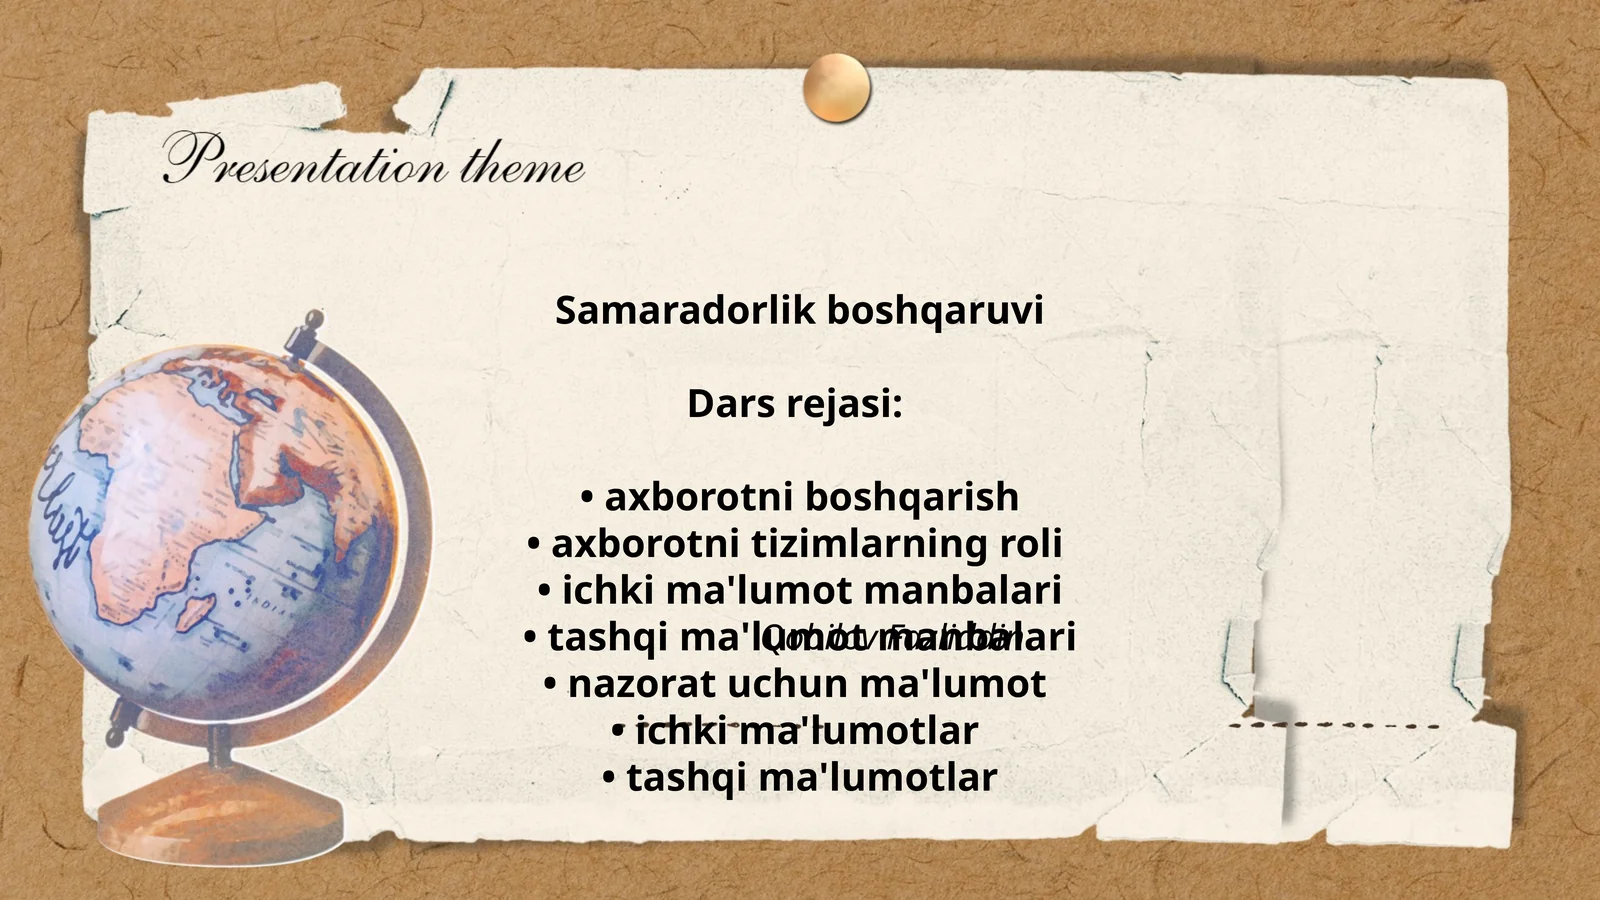 Presentation theme
Samaradorlik boshqaruvi
Dars rejasi:
• axborotni boshqarish
• axborotni tizimlarning roli
• ichki ma'lumot manbalari
• tashqi ma'lumot manbalari
• nazorat uchun ma'lumot
• ichki ma'lumotlar
• tashqi ma'lumotlar